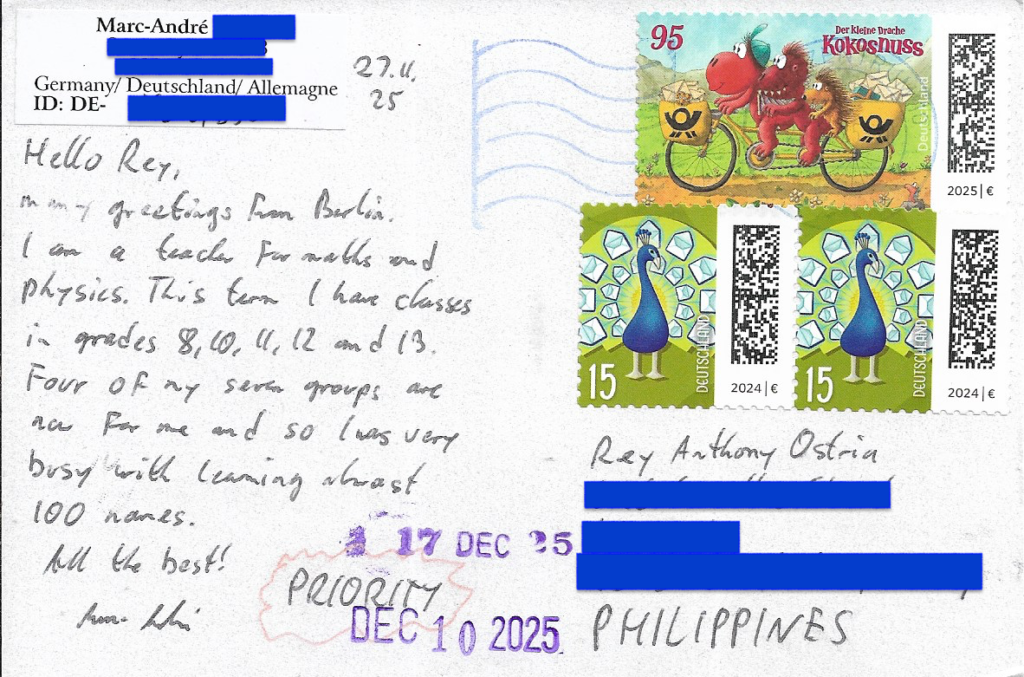 Marc-André
Germany/ Deutschland/ Allemagne
ID: DE-
27.11.
25
Hello Rey,
many greetings from Berlin.
I am a teacher for maths and
physics. This term I have classes
in grades 8, 10, 11, 12 and 13.
Four of my seven groups are
new for me and so I was very
busy with learning almost
100 names.
All the best!
PRIORITY
17 DEC 25
DEC 10 2025
95
Der kleine Drache
Kokosnuss
Deutschland
2025 | €
15
DEUTSCHLAND
2024 | €
15
DEUTSCHLAND
2024 | €
Rey Anthony Ostria
PHILIPPINES